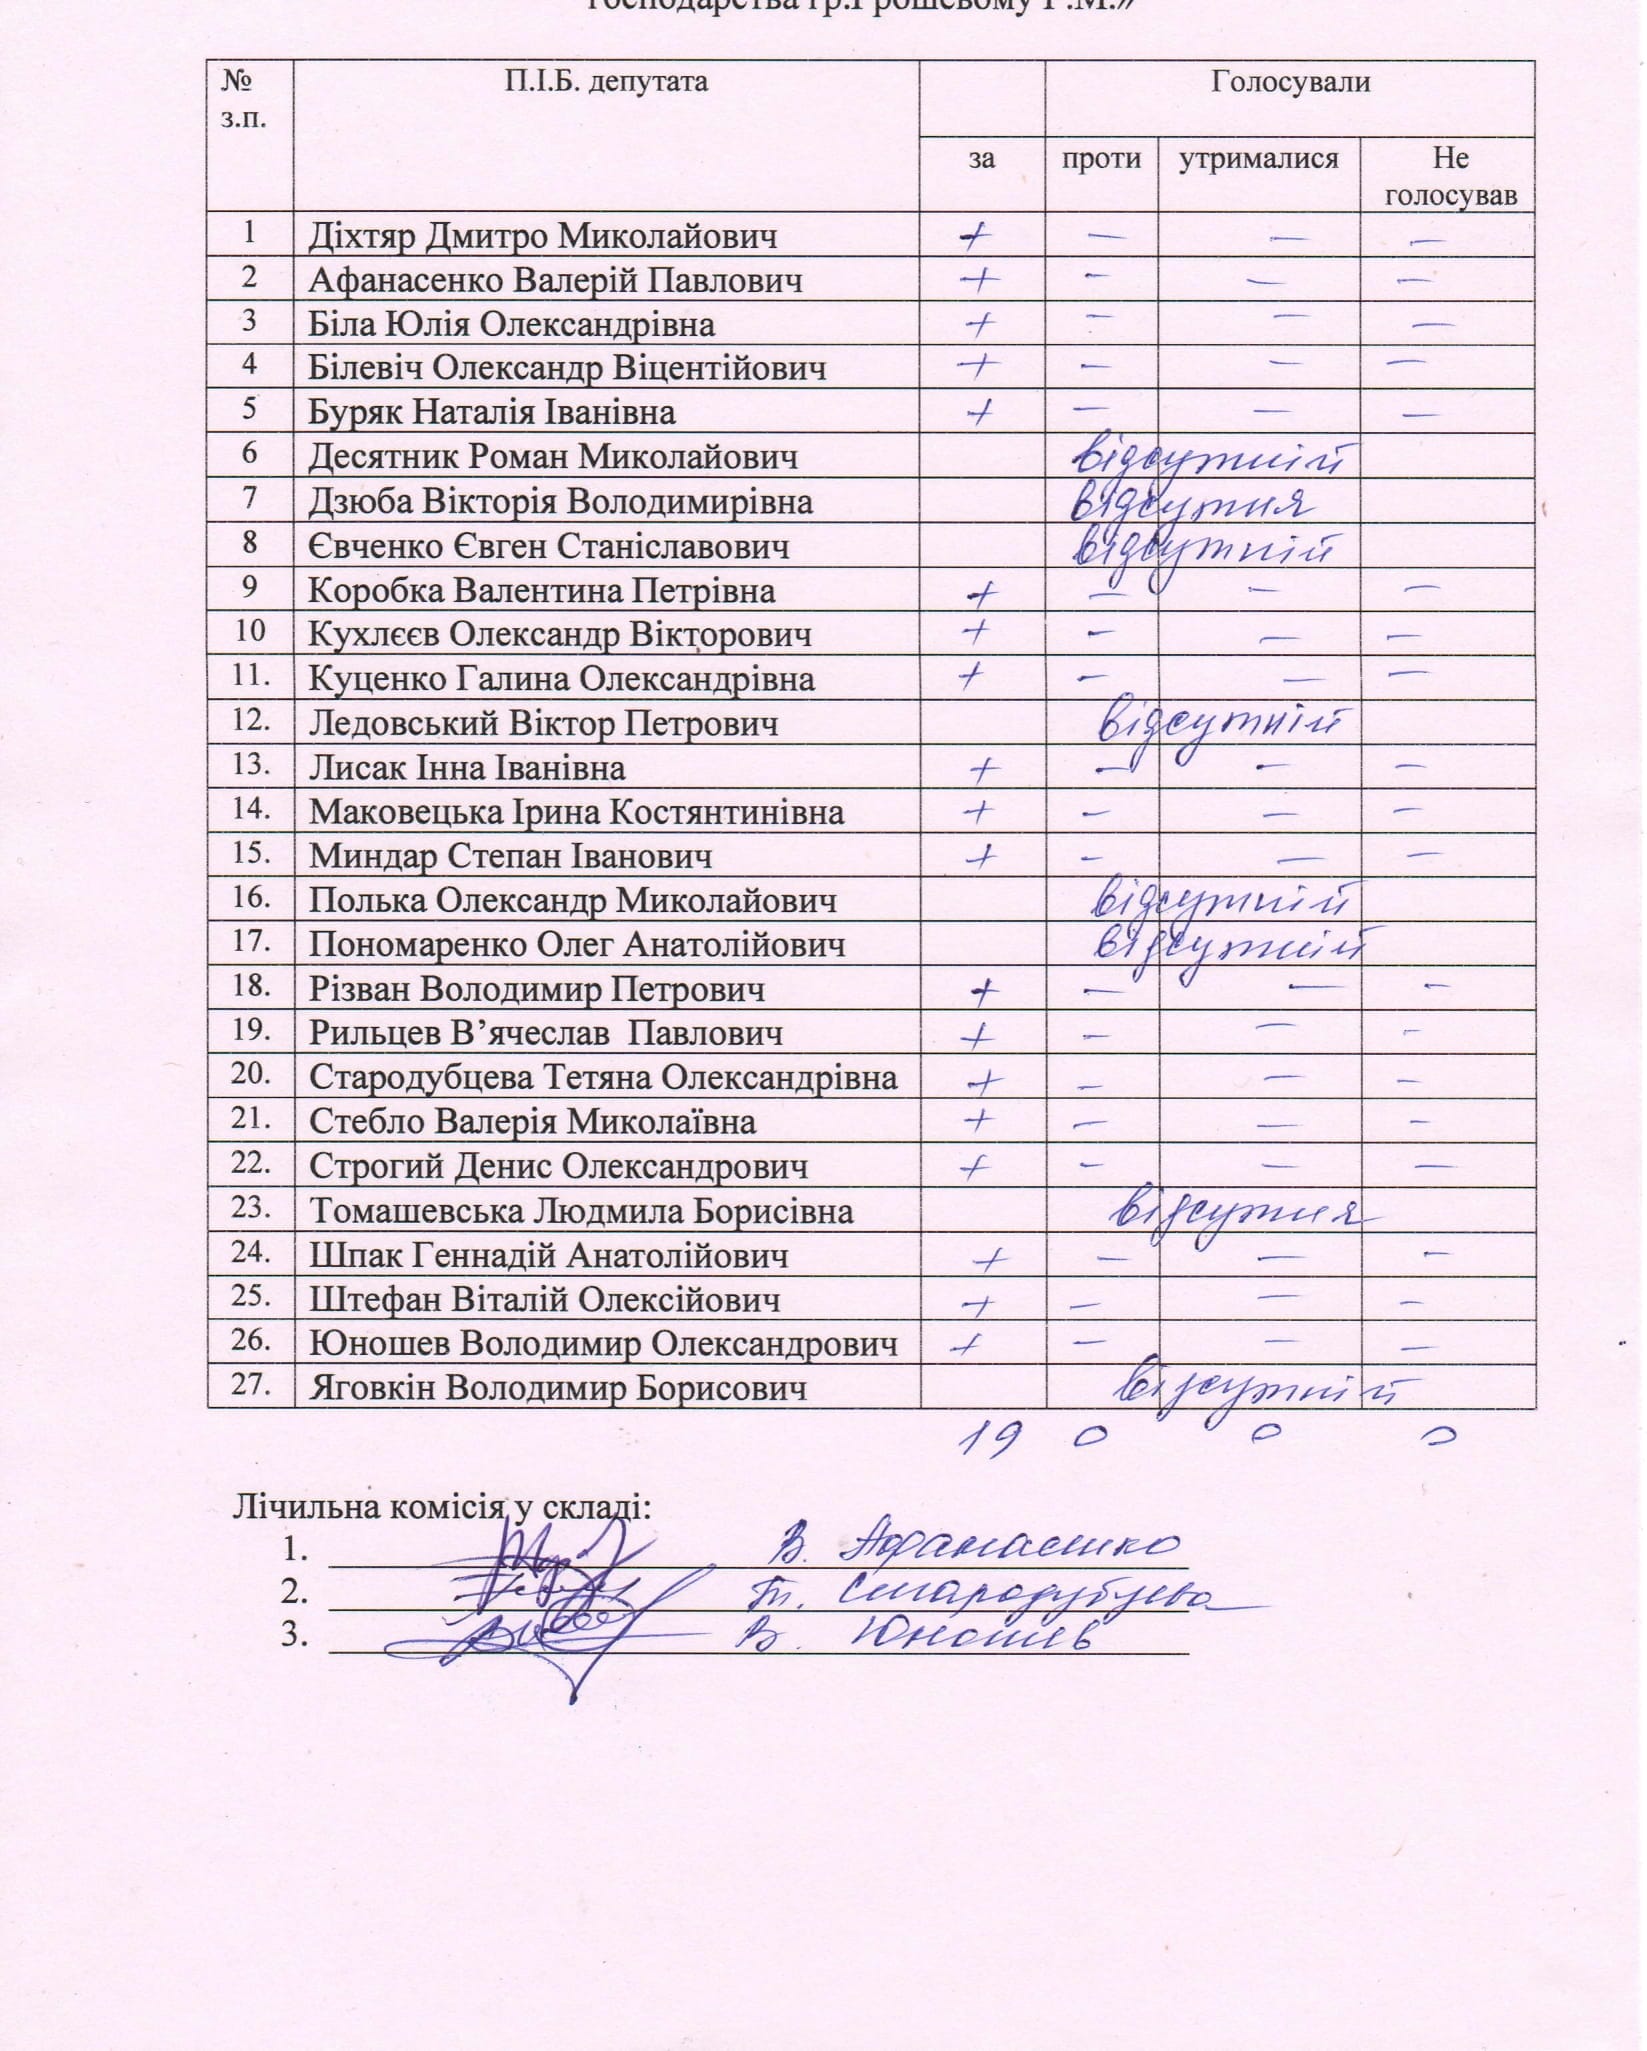 господарства гр.Грошевому Г.М.»
№ з.п. П.І.Б. депутата Голосували
за проти утрималися Не голосував
1 Діхтяр Дмитро Миколайович + — — —
2 Афанасенко Валерій Павлович + — — —
3 Біла Юлія Олександрівна + — — —
4 Білевіч Олександр Віцентійович + — — —
5 Буряк Наталія Іванівна + — — —
6 Десятник Роман Миколайович відсутній
7 Дзюба Вікторія Володимирівна відсутня
8 Євченко Євген Станіславович відсутній
9 Коробка Валентина Петрівна + — — —
10 Кухлєєв Олександр Вікторович + — — —
11. Куценко Галина Олександрівна + — — —
12. Ледовський Віктор Петрович відсутній
13. Лисак Інна Іванівна + — — —
14. Маковецька Ірина Костянтинівна + — — —
15. Миндар Степан Іванович + — — —
16. Полька Олександр Миколайович відсутній
17. Пономаренко Олег Анатолійович відсутній
18. Різван Володимир Петрович + — — —
19. Рильцев В’ячеслав Павлович + — — —
20. Стародубцева Тетяна Олександрівна + — — —
21. Стебло Валерія Миколаївна + — — —
22. Строгий Денис Олександрович + — — —
23. Томашевська Людмила Борисівна відсутня
24. Шпак Геннадій Анатолійович + — — —
25. Штефан Віталій Олексійович + — — —
26. Юношев Володимир Олександрович + — — —
27. Яговкін Володимир Борисович відсутній
19 0 0 0
Лічильна комісія у складі:
1. В. Афанасенко
2. Т. Стародубцева
3. В. Юношев